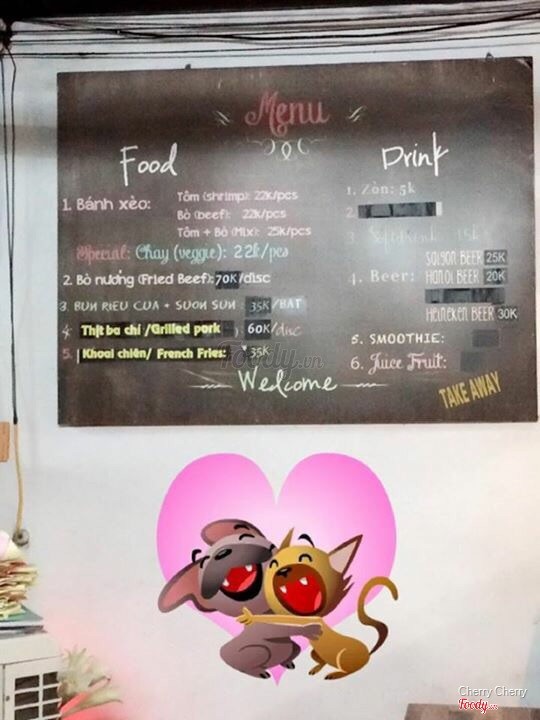 Menu
Food
Drink
1. Bánh xèo:
Tôm (shrimp): 22k/pcs
Bò (beef): 22k/pcs
Tôm + Bò (Mix): 25k/pcs
Special: Chay (veggie): 22k/pcs
2. Bò nướng (Fried Beef): 70K/disc
3. BUN RIEU CUA + SUON SUN: 35K/BAT
4. Thịt ba chỉ /Grilled pork 60K/disc
5. Khoai chiên/ French Fries: 35K
Welcome
1. Zòn: 5k
2
3. Softdrink: 15k
SaiGon BEER 25K
4. Beer: HaNOI BEER 20K
HeiNeKeN BEER 30K
5. SMOOTHIE:
6. Juice Fruit:
TAKE AWAY
Foody.vn
Cherry Cherry
Foody.vn